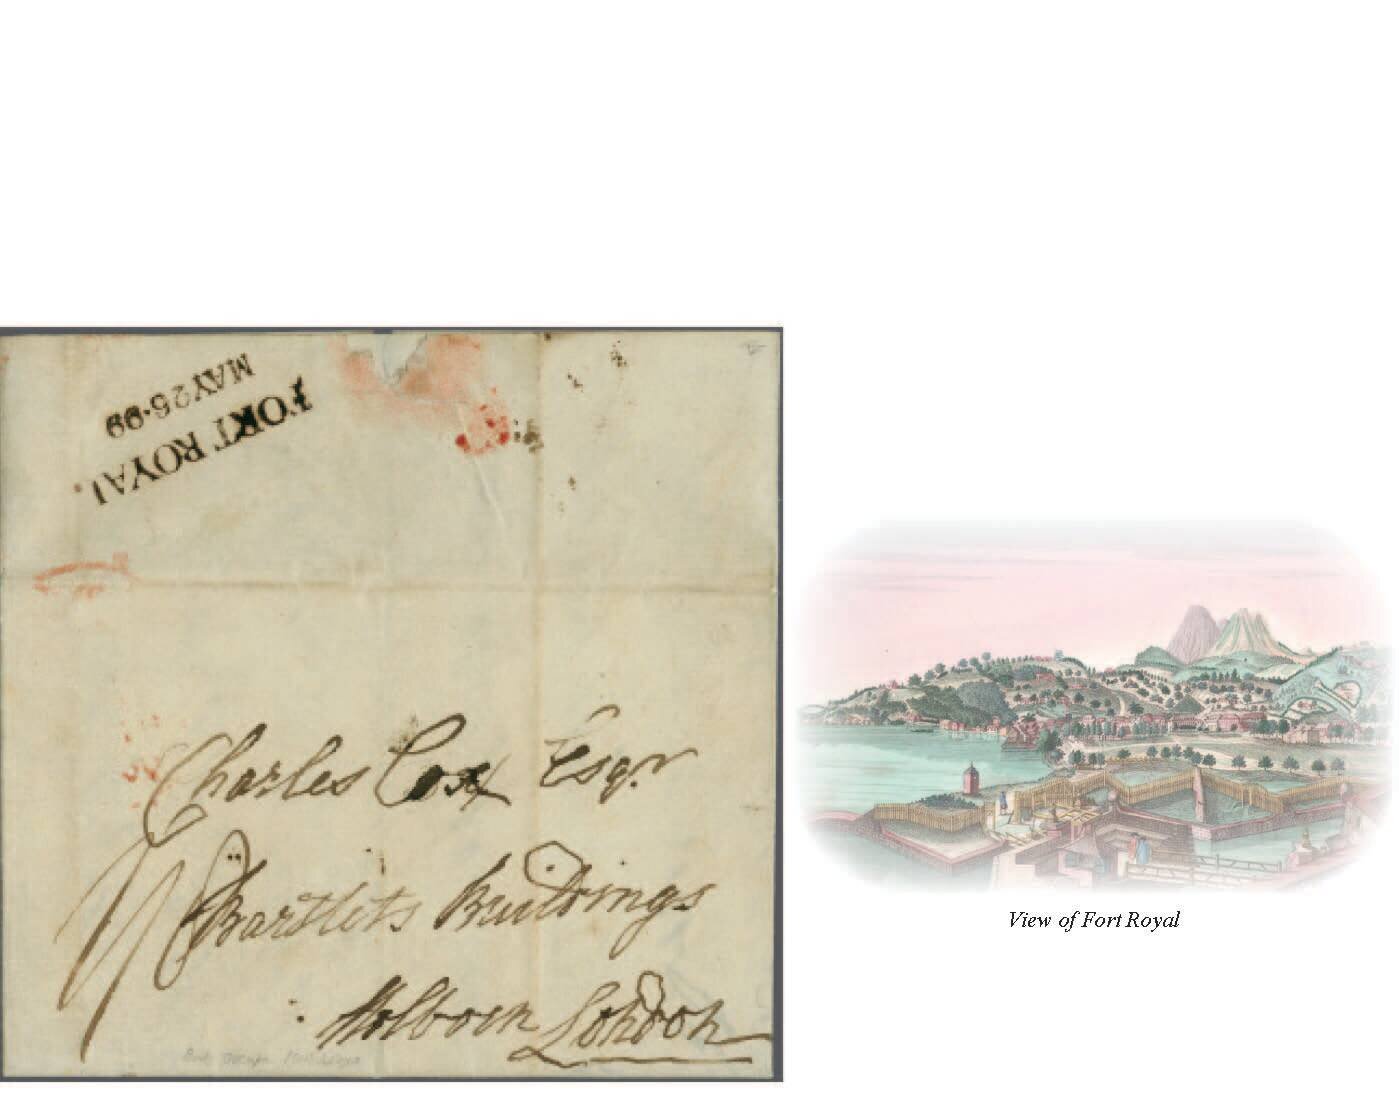 FORT ROYAL.
MAY 26·99
Charles Cox Esqr.
Bartlets Buildings
Holborn London
View of Fort Royal